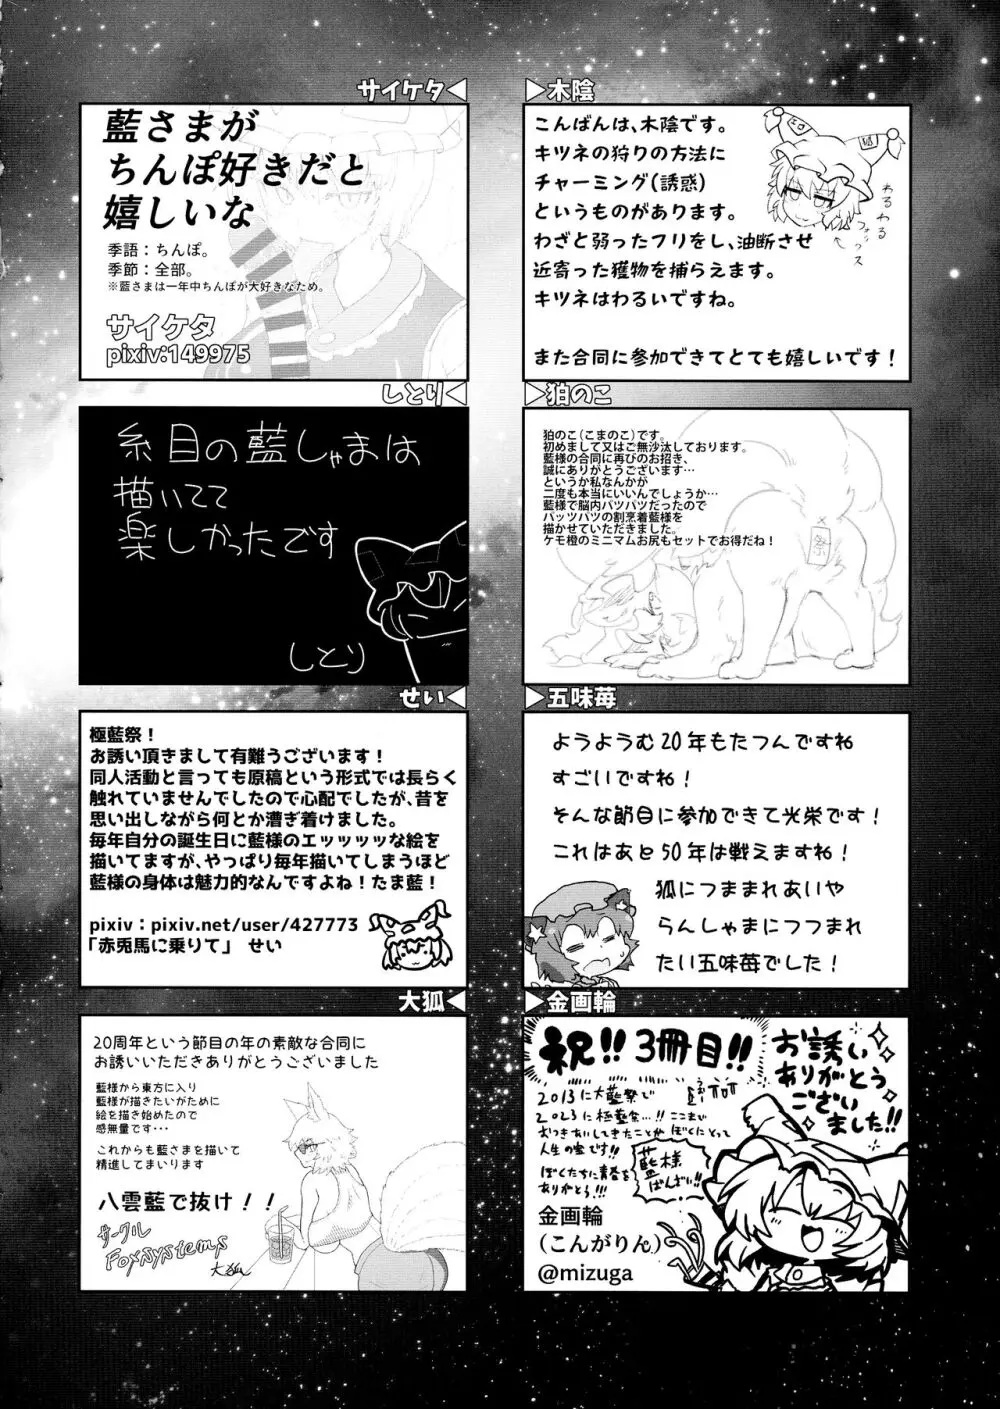 サイケタ
藍さまが
ちんぽ好きだと
嬉しいな
季語：ちんぽ。
季節：全部。
※藍さまは一年中ちんぽが大好きなため。
サイケタ
pixiv:149975
木陰
こんばんは、木陰です。
キツネの狩りの方法に
チャーミング(誘惑)
というものがあります。
わざと弱ったフリをし、油断させ
近寄った獲物を捕らえます。
キツネはわるいですね。
また合同に参加できてとても嬉しいです！
わるわる
フォックス
しとり
糸目の藍しゃまは
描いてて
楽しかったです
しとり
狛のこ
狛のこ(こまのこ)です。
初めまして又はご無沙汰しております。
藍様の合同に再びのお招き、
誠にありがとうございます…
というか私なんかが
二度も本当にいいんでしょうか…
藍様で脳内パツパツだったので
パッツパツの割烹着藍様を
描かせていただきました。
ケモ橙のミニマムお尻もセットでお得だね！
祭
せい
極藍祭！
お誘い頂きまして有難うございます！
同人活動と言っても原稿という形式では長らく
触れていませんでしたので心配でしたが、昔を
思い出しながら何とか漕ぎ着けました。
毎年自分の誕生日に藍様のエッッッッな絵を
描いてますが、やっぱり毎年描いてしまうほど
藍様の身体は魅力的なんですよね！たま藍！
pixiv：pixiv.net/user/427773
「赤兎馬に乗りて」　せい
五味苺
ようようむ20年もたつんですね
すごいですね！
そんな節目に参加できて光栄です！
これはあと50年は戦えますね！
狐につままれあいや
らんしゃまにつつまれ
たい五味苺でした！
大狐
20周年という節目の年の素敵な合同に
お誘いいただきありがとうございました
藍様から東方に入り
藍様が描きたいがために
絵を描き始めたので
感無量です…
これからも藍さまを描いて
精進してまいります
八雲藍で抜け！！
サークル
Foxsystems
大狐
金画輪
祝!!3冊目!!
お誘い
ありがとう
ござい
ました!!
2013に大藍祭で
2023に極藍祭…!! ここまで
おつきあいしてきたことが ぼくにとって
人生の宝です!!
ぼくたちに青春を
ありがとう!!!
藍様
ばんざい!!
金画輪
(こんがりん)
@mizuga